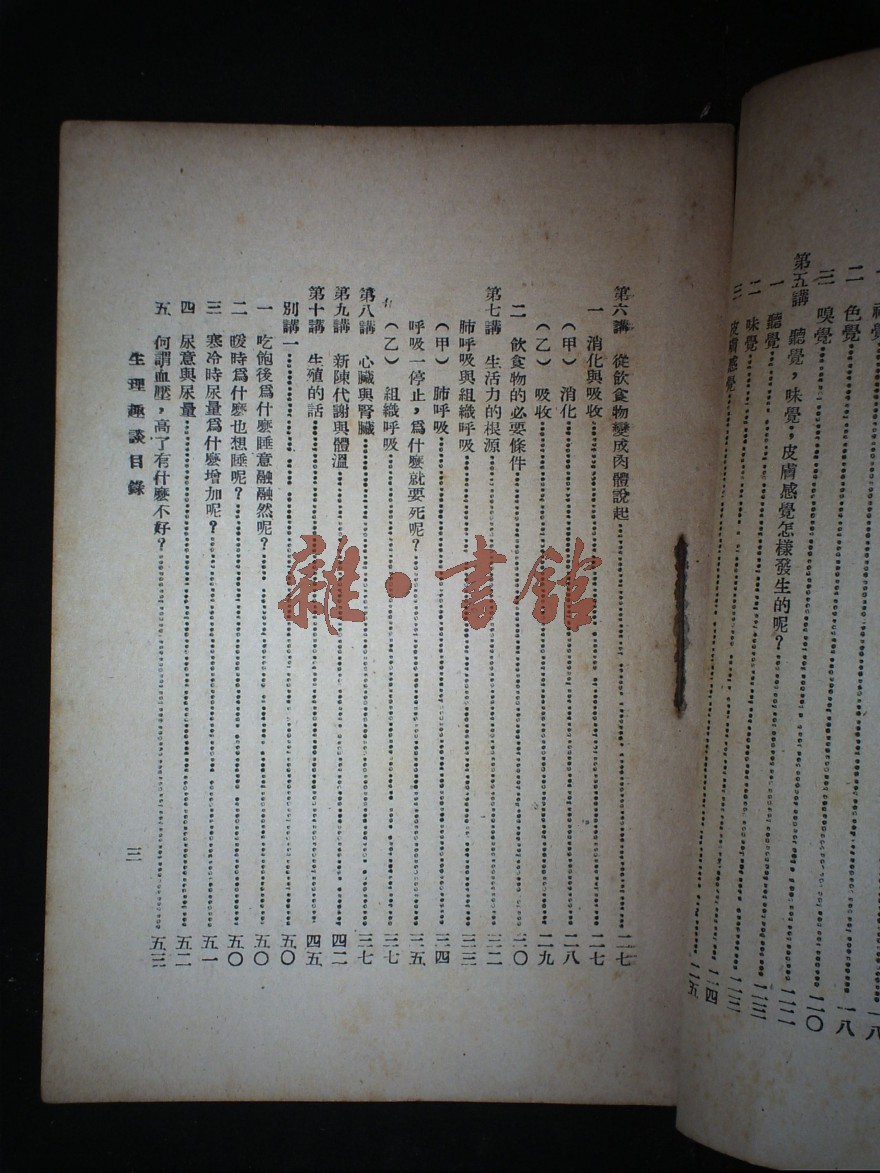 覺
一八
二 色覺……一八
三 嗅覺……二〇
第五講 聽覺，味覺，皮膚感覺怎樣發生的呢？……二二
一 聽覺……二三
二 味覺……二三
三 皮膚感覺……二四
二五
第六講 從飲食物變成肉體說起……二七
一 消化與吸收……二七
（甲） 消化……二八
（乙） 吸收……二九
二 飲食物的必要條件……三〇
第七講 生活力的根源……三二
肺呼吸與組織呼吸……三三
（甲） 肺呼吸……三四
呼吸一停止，爲什麽就要死呢？……三五
（乙） 組織呼吸……三七
第八講 心臟與腎臟……三七
第九講 新陳代謝與體溫……四二
第十講 生殖的話……四五
別講一……五〇
一 吃飽後爲什麽睡意融融然呢？……五〇
二 暖時爲什麽也想睡呢？……五〇
三 寒冷時尿量爲什麽增加呢？……五一
四 尿意與尿量……五二
五 何謂血壓，高了有什麽不好？……五三
生理趣談目錄
三
雜·書館